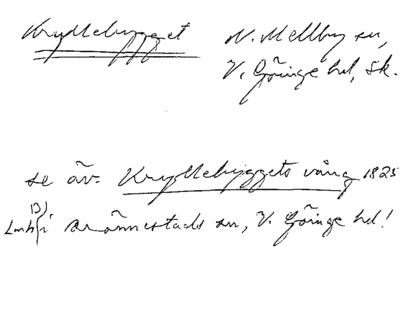 Kryllebygget N. Mellby sn,
V. Göinge hd, Sk.
se äv. Kryllebyggets vång 1825
Lmh i Brönnestads sn, V. Göinge hd!